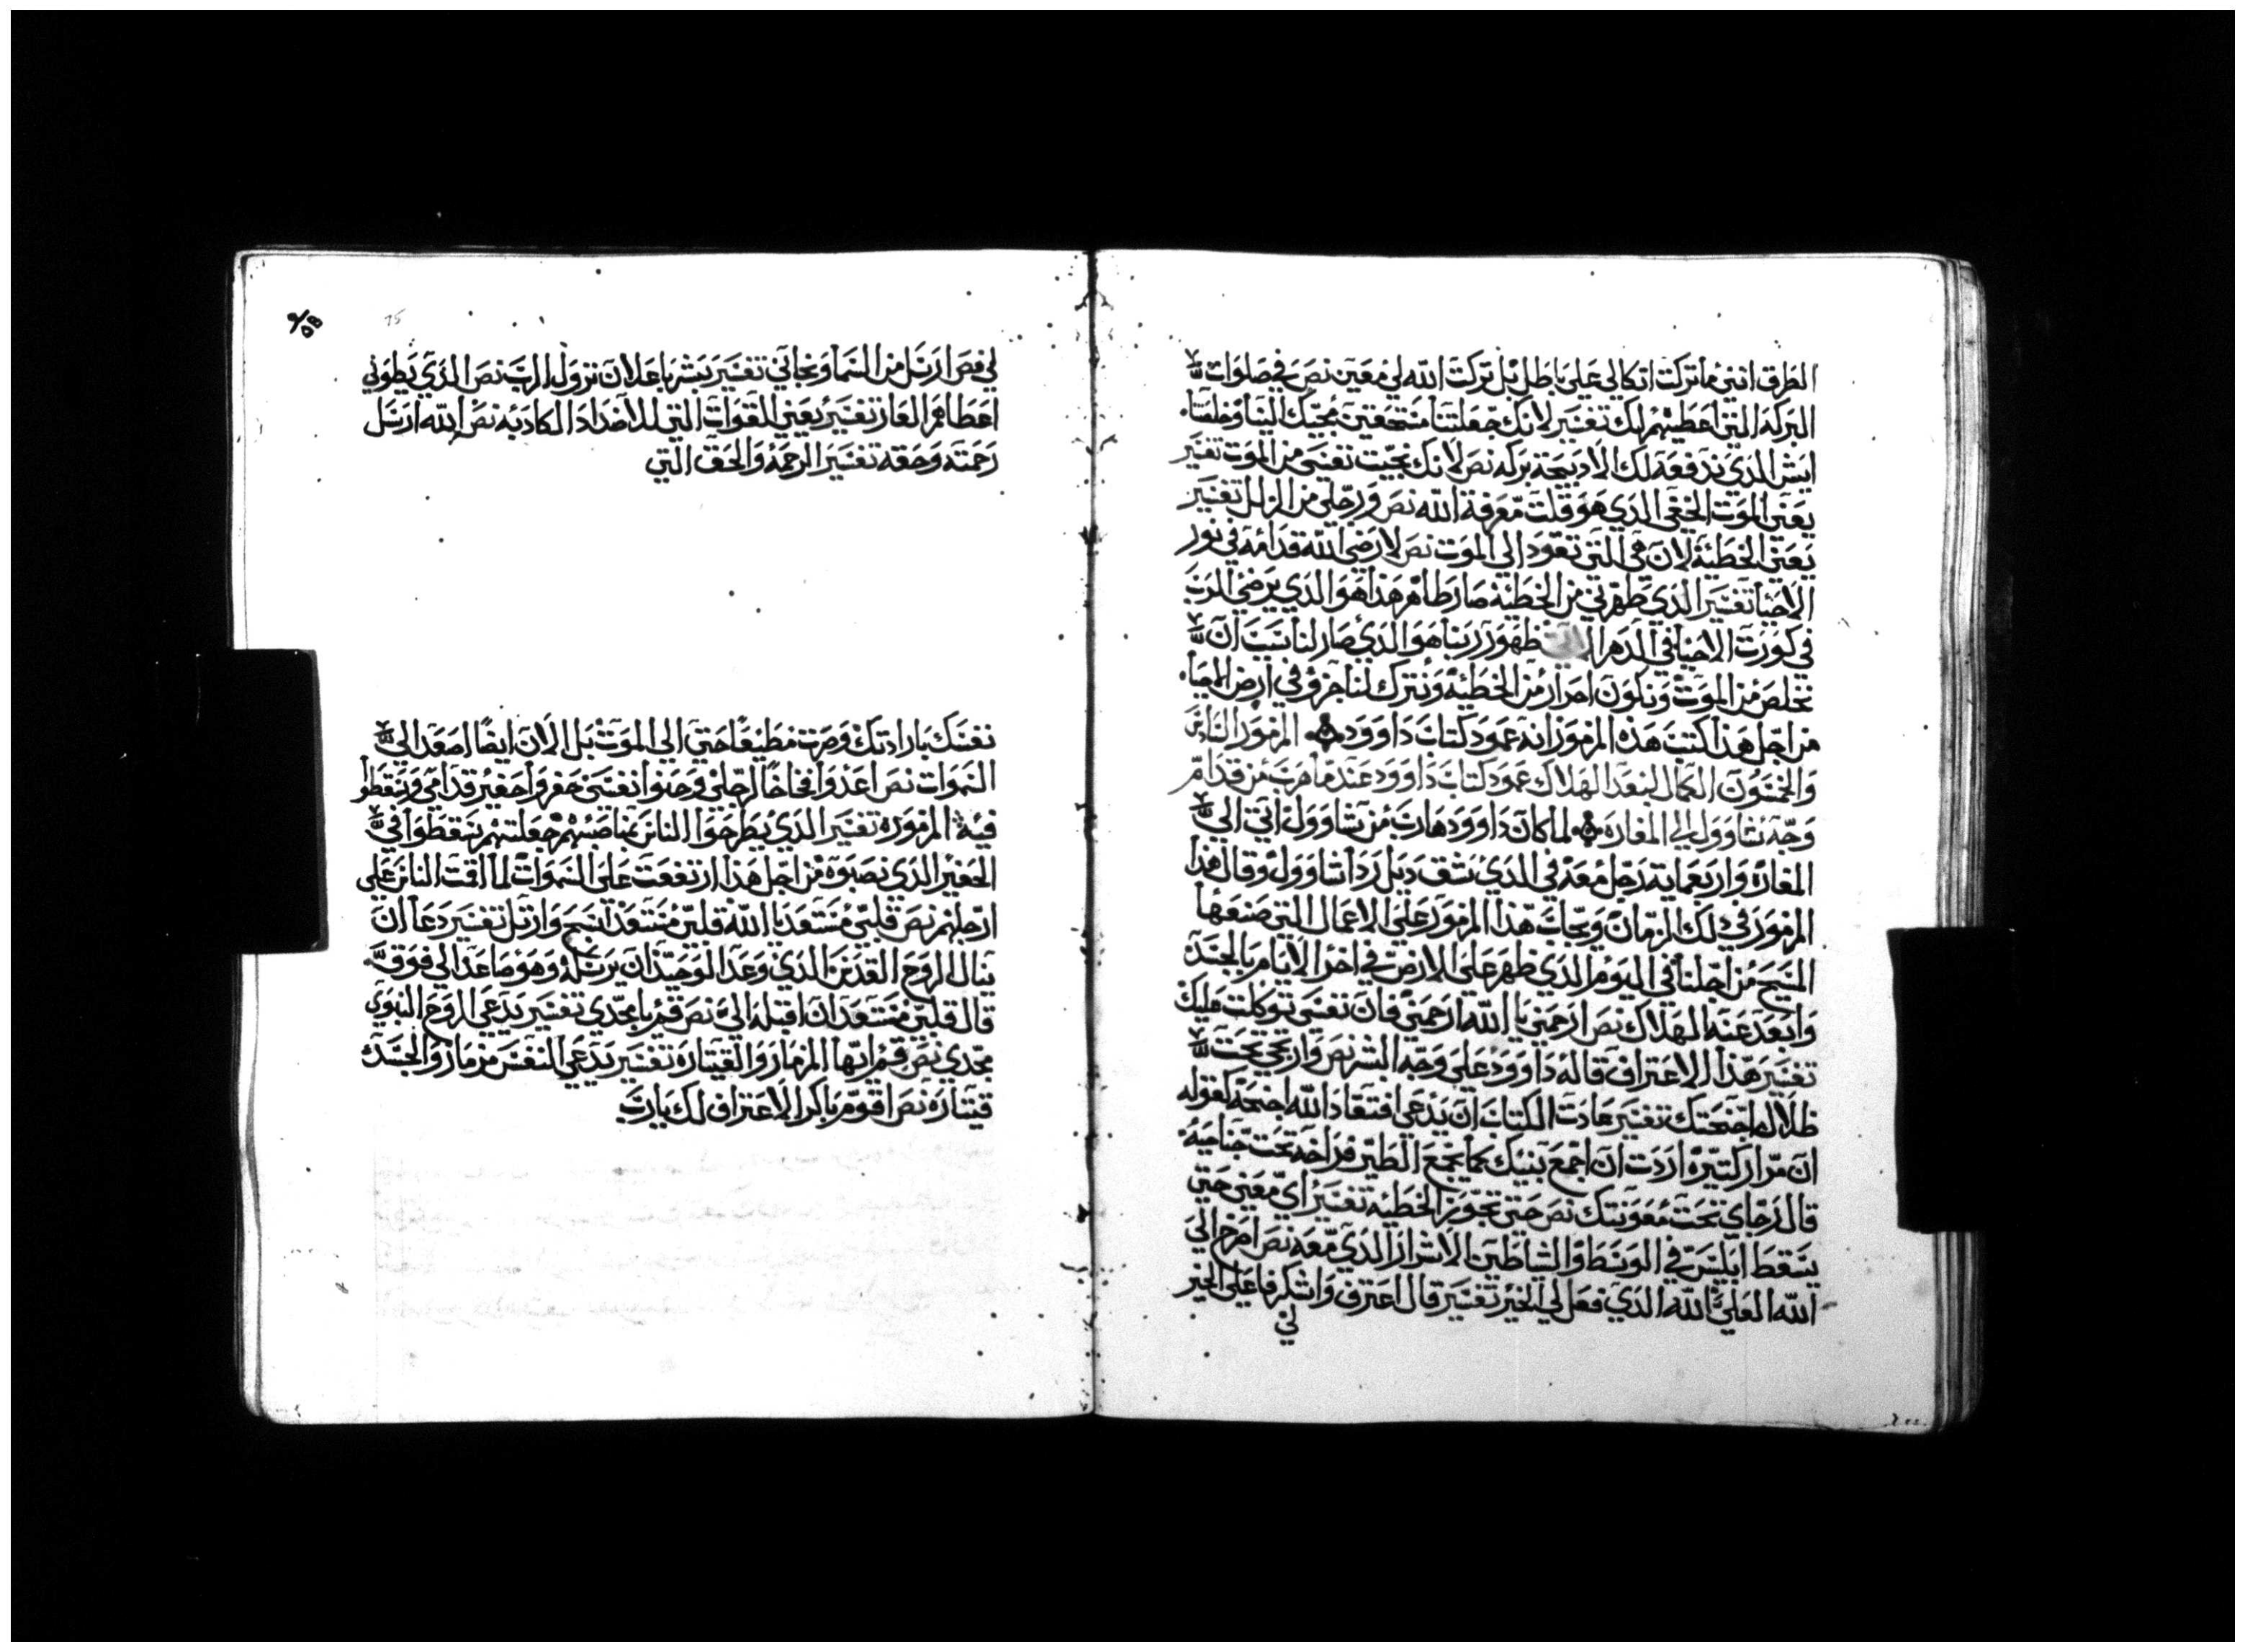 الطرق انني ما تركت اتكالي على باطل بل تركت الله لي معين نص في صلوات
البركه التي اعطيتهم لك تفسير لانك جعلتنا مستحقين بمجيك الينا وخلصنا
ايش الدي ندفعه لك الا دبيحة بركه نص لانك نجيت نفسي من الموت تفسير
يعني الموت الخفي الدي هو قلت معرفة الله نص ورجلي من الزلل تفسير
يعني الخطية لان هي التي تقود الي الموت نص لارضي الله قدامه في نور
الاحيا تفسير الدي طهرني من الخطية صار طاهر هذا هو الدي يرضي الرب
في كورت الاحيا في الدهر ظهور ربنا هو الدي صار لنا سبب ان
نخلص من الموت ونكون احرار من الخطيه ونترك لنا جزو في ارض المحيا
من اجل هذا كتب هذه المزمور انه عمود كتاب داوود المزمور السادس
والخمسون الكمال لبعد الهلاك عمود كتاب داوود عند ما هرب من قدام
وجه شاوول الي المغاره لما كان داوود هارب من شاوول اتي الي
المغاره واربعمايه رجل معه في الدي شق دبل ردا شاوول وقال هذا
المزمور في دلك الزمان وبجات هذا المزمور على الاعمال التي صنعها
المسيح من اجلنا في اليوم الدي ظهر على الارض في اخر الايام بالجسد
وابعد عنه الهلاك نص ارحمني يا الله ارحمني فان نفسي توكلت عليك
تفسير هذا الاعتراف قاله داوود على وجه البشر نص وارتجي تحت
ظلال اجنحتك تفسير عادت الكتاب ان يدعي افتقاد الله اجنحه كقوله
ان مرار كتيره اردت ان اجمع بنيك كما يجمع الطير فراخه تحت جناحيه
قال رجاي تحت معونتك نص حتي تجوز الخطيه تفسير اي معني حتي
يسقط ابليس في الوسط والشاطين الاشرار الدي معه نص اصرخ الي
الله العلي الله الدي فعل لي الخير تفسير قال اعترف واشكر فاعلي الخير
لي
لي نص ارسل من السما ونجاني تفسير يبشر باعلان نزول الرب نص الدي يطوني
اعطاهم العار تفسير يعني القوات التي للاضداد الكادبه نص الله ارسل
رحمته وحقه تفسير الرحمه والحق التي
نفسك بارادتك وصرت مطيعا حتي الي الموت بل الان ايضا اصعد الي
السموات نص اعدوا فخاخا لرجلي وحنوا نفسي حفروا حفير قدامي وسقطوا
فيه المزموره تفسير الدي يطرحوا الناس بمناصبهم جعلتهم يسقطوا في
الحفير الدي نصبوه من اجل هذا ارتفعت على السموات لما اقمت الناس على
ارجلهم نص قلبي مستعد يا الله قلبي مستعد اسبح وارتل تفسير دعا ان
ينال الروح القدس الدي وعد الوحيد ان يرسله وهو صاعد الي فوق
قال قلبي مستعد ان اقبله الي نص قم يا مجدي تفسير يدعي الروح النبوي
مجدي نص قم ايها المزمار والقيتاره تفسير يدعي النفس مزمار والجسد
قيتاره نص اقوم باكر الاعتراف لك يا رب